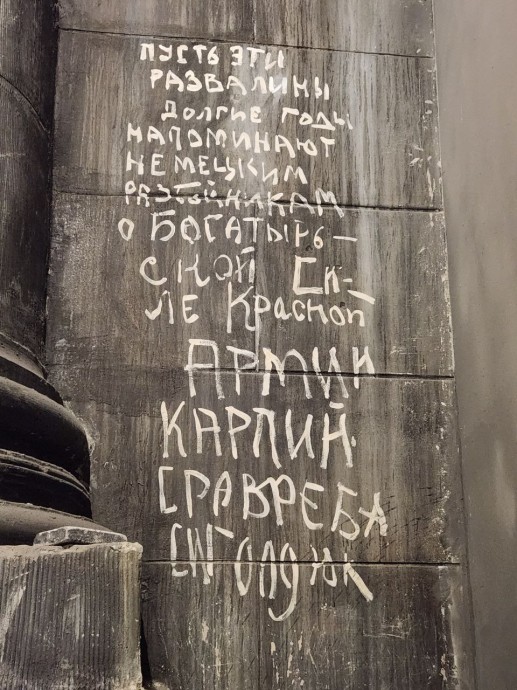 ПУСТЬ ЭТИ
РАЗВАЛИНЫ
ДОЛГИЕ ГОДЫ
НАПОМИНАЮТ
НЕМЕЦКИМ
РАЗБОЙНИКАМ
О БОГАТЫРЬ-
СКОЙ СИ-
ЛЕ КРАСНОЙ
АРМИИ
КАРПИЙ